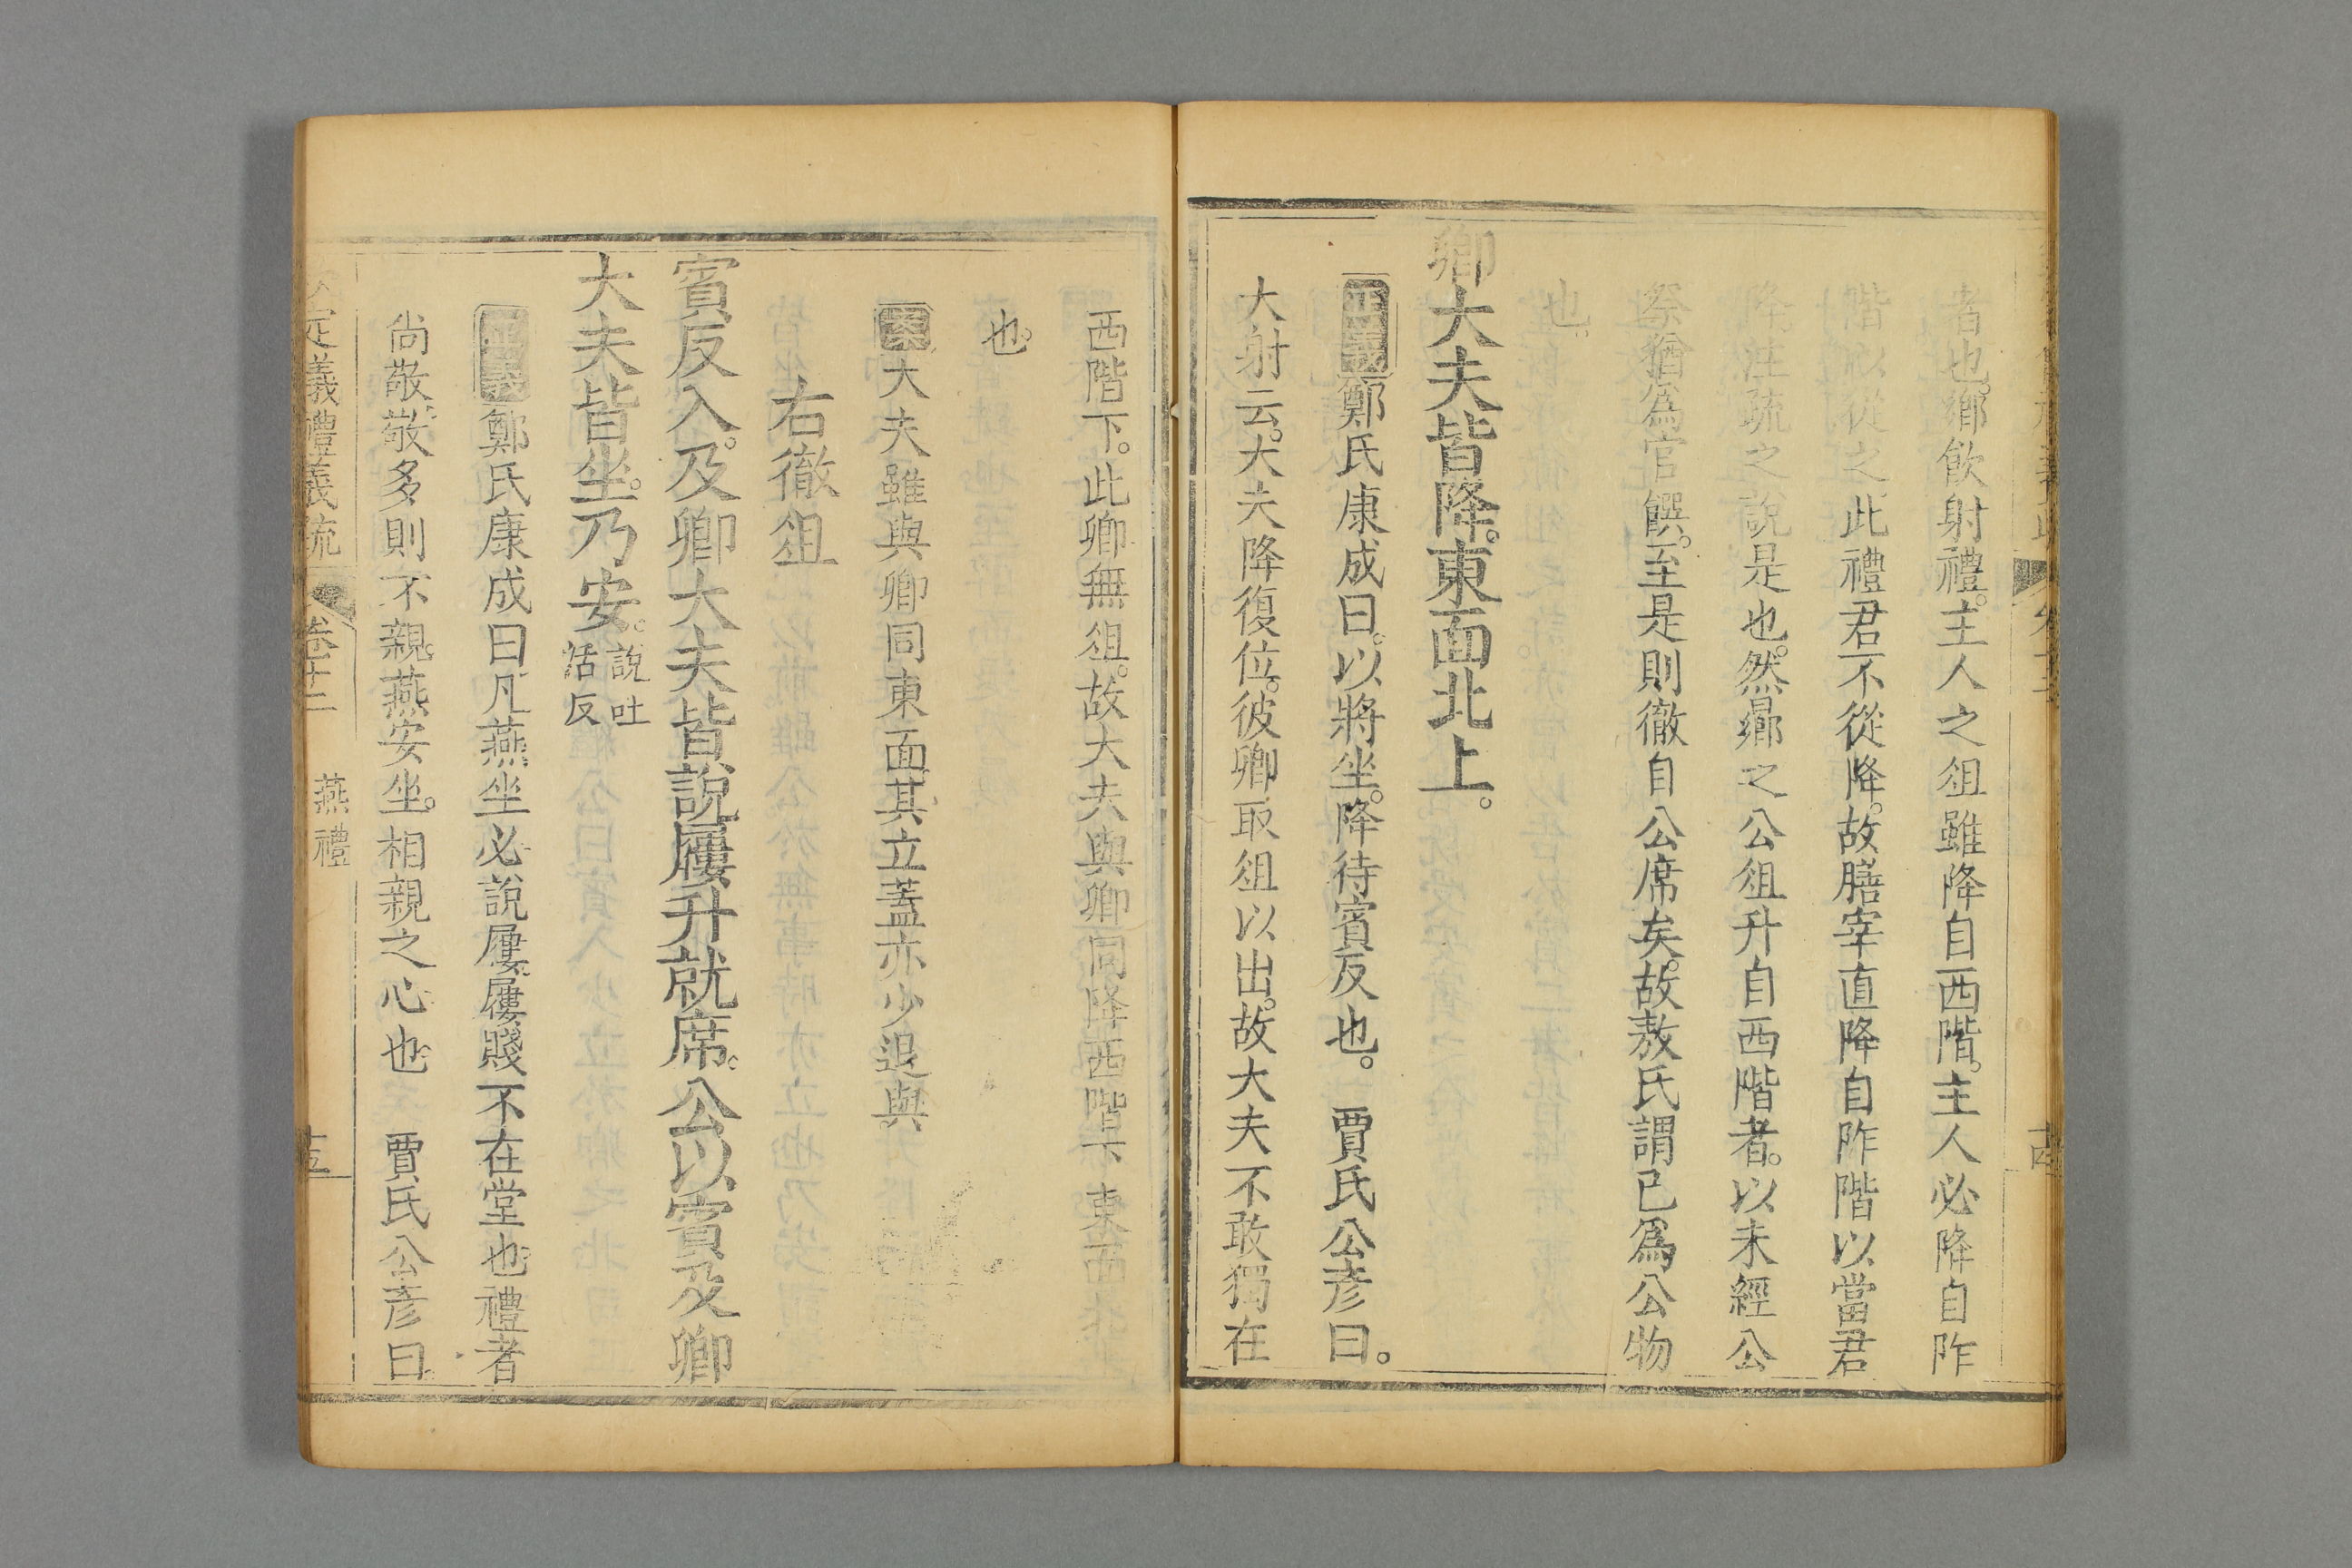 者也。鄉飲射禮。主人之俎雖降自西階。主人必降自阼
階以從之。此禮君不從降。故膳宰直降自阼階以當君
降。注疏之說是也。然鄉之公俎升自西階者。以未經公
祭猶爲官饌。至是則徹自公席矣。故敖氏謂已爲公物
也。
卿大夫皆降。東面北上。
正義鄭氏康成曰。以將坐。降待賓反也。 賈氏公彦曰。
大射云。大夫降復位。彼卿取俎以出。故大夫不敢獨在
西階下。此卿無俎。故大夫與卿同降西階下東面北
也。
案大夫雖與卿同東面其立蓋亦少退與
右徹俎
賓反入。及卿大夫皆說屨升就席。公以賓及卿
大夫皆坐。乃安。說吐活反
正義鄭氏康成曰凡燕坐必說屨屨賤不在堂也禮者
尚敬敬多則不親。燕安坐。相親之心也 賈氏公彦曰
定義禮義疏 卷十二 燕禮